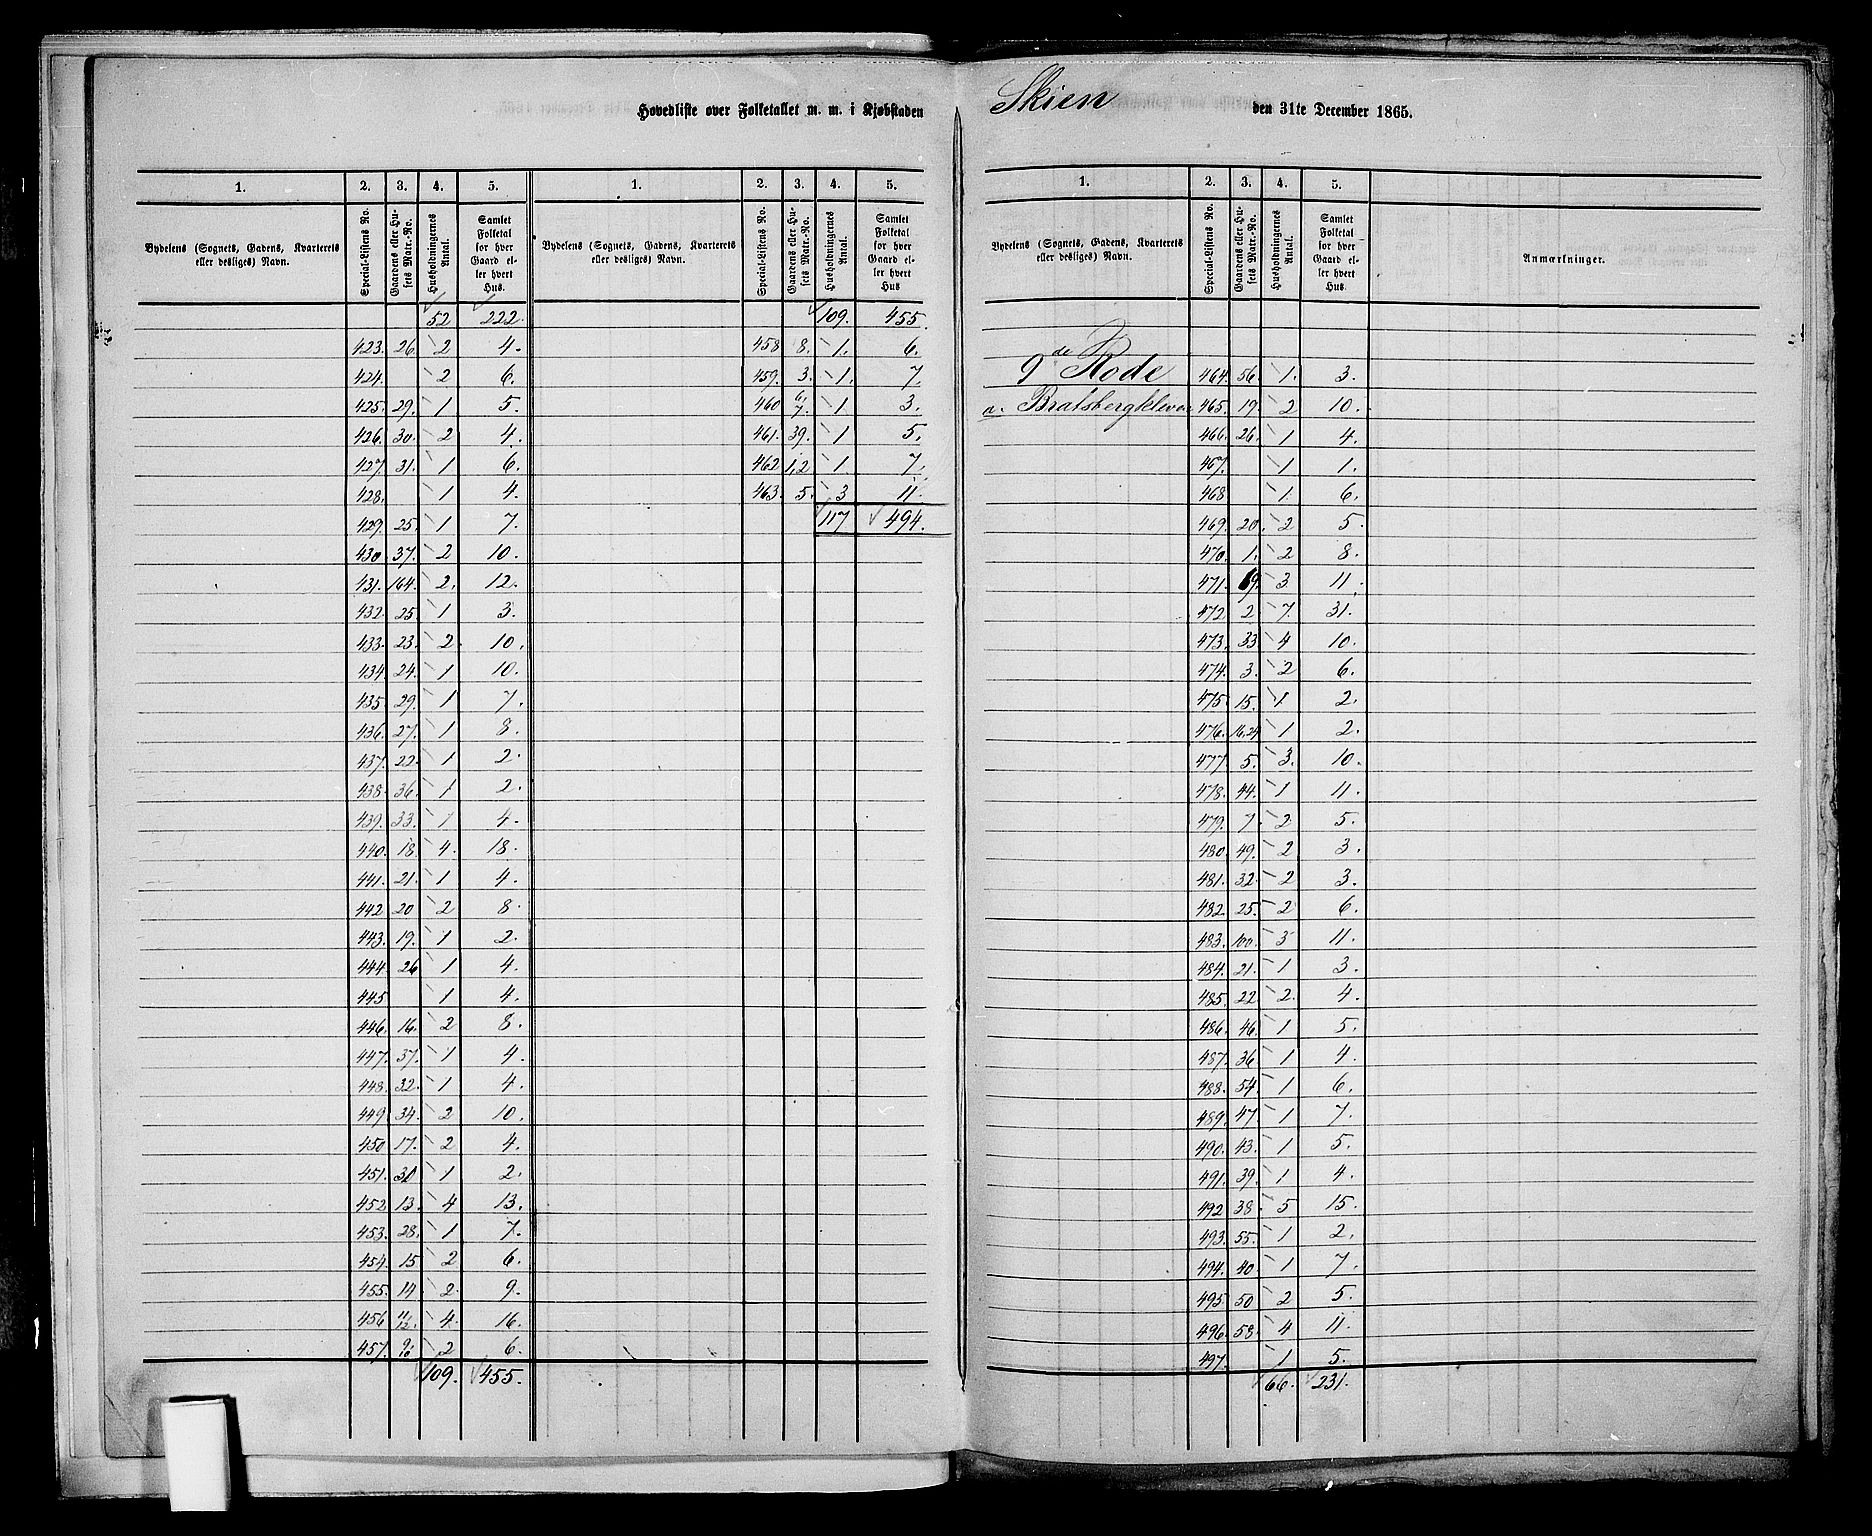 Hovedliste over Folketallet m. m. i Kjøbstaden Skien den 31te December 1865.
1. 2. 3. 4. 5. 1. 2. 3. 4. 5.
Bydelens (Sognets, Gadens, Kvarterets eller desliges) Navn. Special-Listens No. Gaardens eller Husets Matr.-No. Husholdningernes Antal. Samlet Folketal for hver Gaard eller hvert Hus. Bydelens (Sognets, Gadens, Kvarterets eller desliges) Navn. Special-Listens No. Gaardens eller Husets Matr.-No. Husholdningernes Antal. Samlet Folketal for hver Gaard eller hvert Hus
52 222. 109. 455.
423. 26. 2 4. 458 8. 1. 6.
424. 2 6. 459. 3. 1. 7.
425. 29. 1 5. 460 6/7. 1 3.
426. 30. 2 4. 461. 39. 1 5.
427. 31. 1 6. 462 1,2 1. 7.
428. 1 4. 463. 5. 3 11.
429. 25. 1 7. 117 494.
430. 37. 2 10.
431. 164. 2. 12.
432. 25. 1 3.
433. 23. 2. 10.
434. 24. 1 10.
435. 29. 1 7.
436. 27. 1 8.
437. 22. 1 2.
438. 36. 1 2.
439. 33. 1 4.
440. 18. 4. 18.
441. 21. 1 4.
442 20 2 8.
443. 19. 1 2.
444. 26 1 4.
445 1 4.
446. 16. 2 8.
447. 37. 1 4.
448. 32. 1 4.
449. 34. 2 10.
450 17. 2 4.
451. 1 2.
452 13. 4 13.
453. 28. 1 7.
454. 15 2 6.
455. 14 2. 9.
456 11/12. 4. 16.
457. 9/10 2 6.
109. 455.
1. 2. 3. 4. 5.
Bydelens (Sognets, Gadens, Kvarterets eller desliges) Navn. Special-Listens No. Gaardens eller Husets Matr.-No. Husholdningernes Antal. Samlet Folketal for hver Gaard eller hvert Hus Anmærkninger.
9de Rode 464. 56. 1. 3.
a. Bratsbergkleven 465. 19. 2 10.
466. 26. 1 4.
467. 1 1.
468 1. 6.
469. 20. 2 5.
470. 1. 2 8.
471. 69. 3 11.
472 2 7. 31.
473. 33 4 10.
474. 3. 2 6.
475. 15. 1. 2.
476. 16,24 1 2.
477. 5. 3. 10.
478. 44. 1 11.
479. 7. 2 5.
480. 49. 2 3.
481. 32. 2 3.
482. 25. 2 6.
483. 100. 3 11.
484. 21. 1 3.
485. 22 2. 4.
486. 46. 1 5.
487. 36 1 4.
488. 54. 1 6.
489. 47 1 7.
490. 43. 1 5.
491. 39. 1 4.
492 38. 5 15.
493. 55. 1 2.
494. 40. 1 7.
495. 50 2 5.
496. 58. 4 11.
497. 1 5.
66. 231.